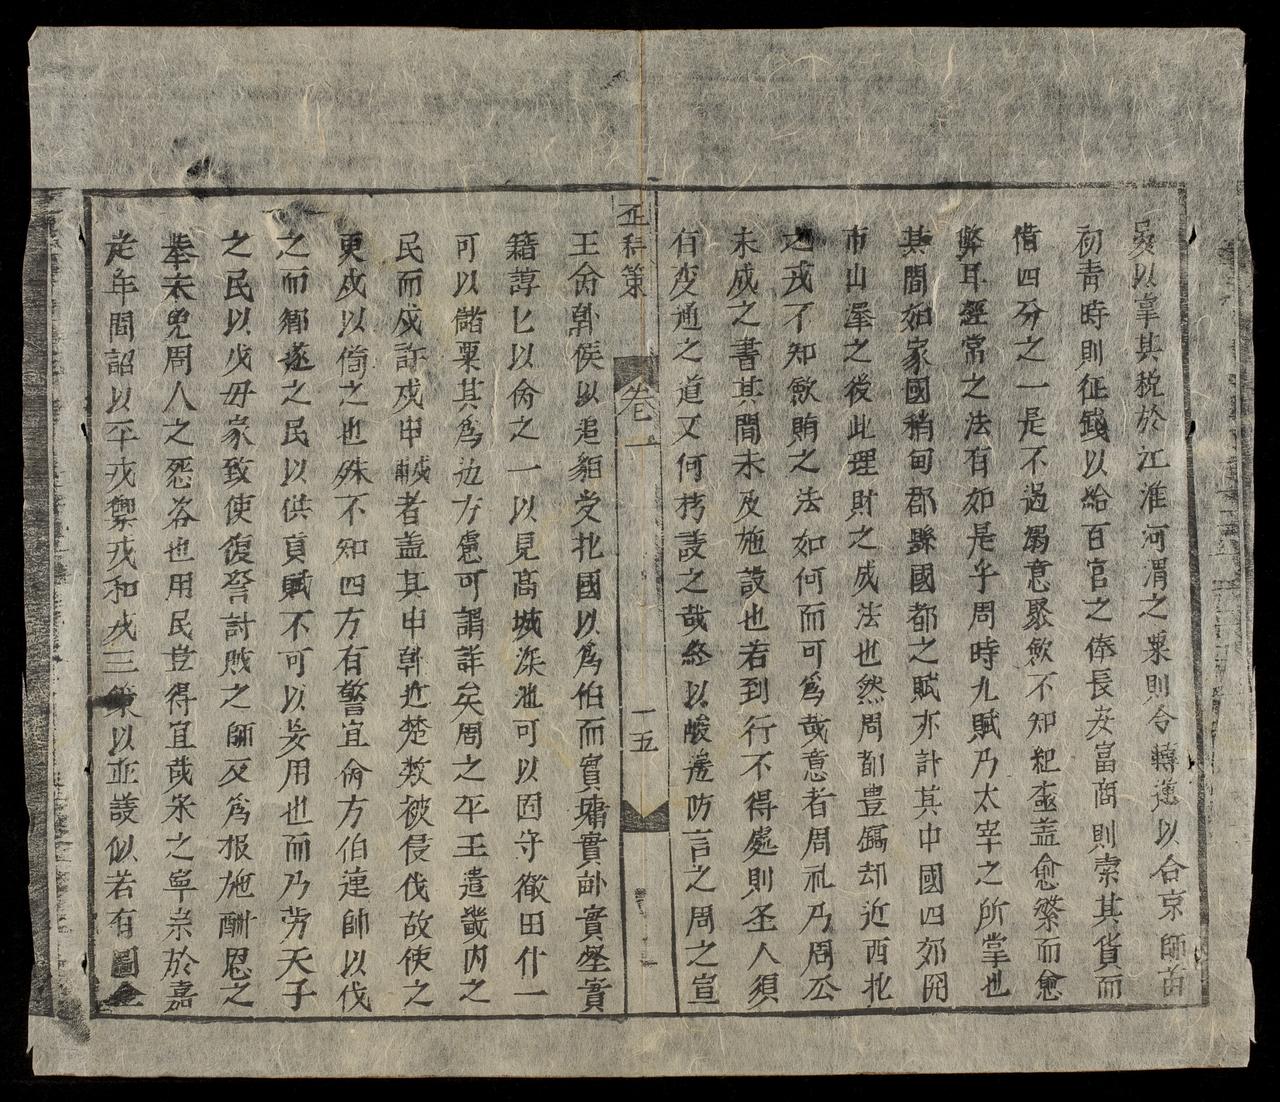 以掌其稅於江淮河渭之粟則令轉運以合京師苗
初青時則征錢以給百官之俸長安富商則索其貨而
借四分之一是不過溺意聚歛不知紀極盖愈繁而愈
弊耳經常之法有如是乎周時九賦乃太宰之所掌也
其間如家國稍甸郡縣國都之賦亦計其中國四郊関
市山澤之後此理財之成法也然周都豊鎬却近西北
之戎不知歛賄之法如何而可爲哉意者周礼乃周公
未成之書其間未及施設也若到行不得處則圣人須
有变通之道又何待設之哉終以峻邊防言之周之宣
𠀧科策 卷一 一五
王命韓侯以追貊受北國以爲伯而實墉實壑實
籍諄匕以俻之一以見高城深池可以固守徹田什一
可以儲粟其爲边方慮可謂詳矣周之平王遣畿内之
民而戍許戍申者盖其申許近楚数被侵伐故使之
更戍以俻之也殊不知四方有警宜命方伯連帥以伐
之而鄉遂之民以供貢賦不可以妄用也而乃労天子
之民以戍毋家致使復讐討賊之師反爲报施酧恩之
舉未免周人之怨咨也用民豈得宜哉宋之寧宗於嘉
定年間詔以平戎禦戎和戎三策以並議似若有圖全